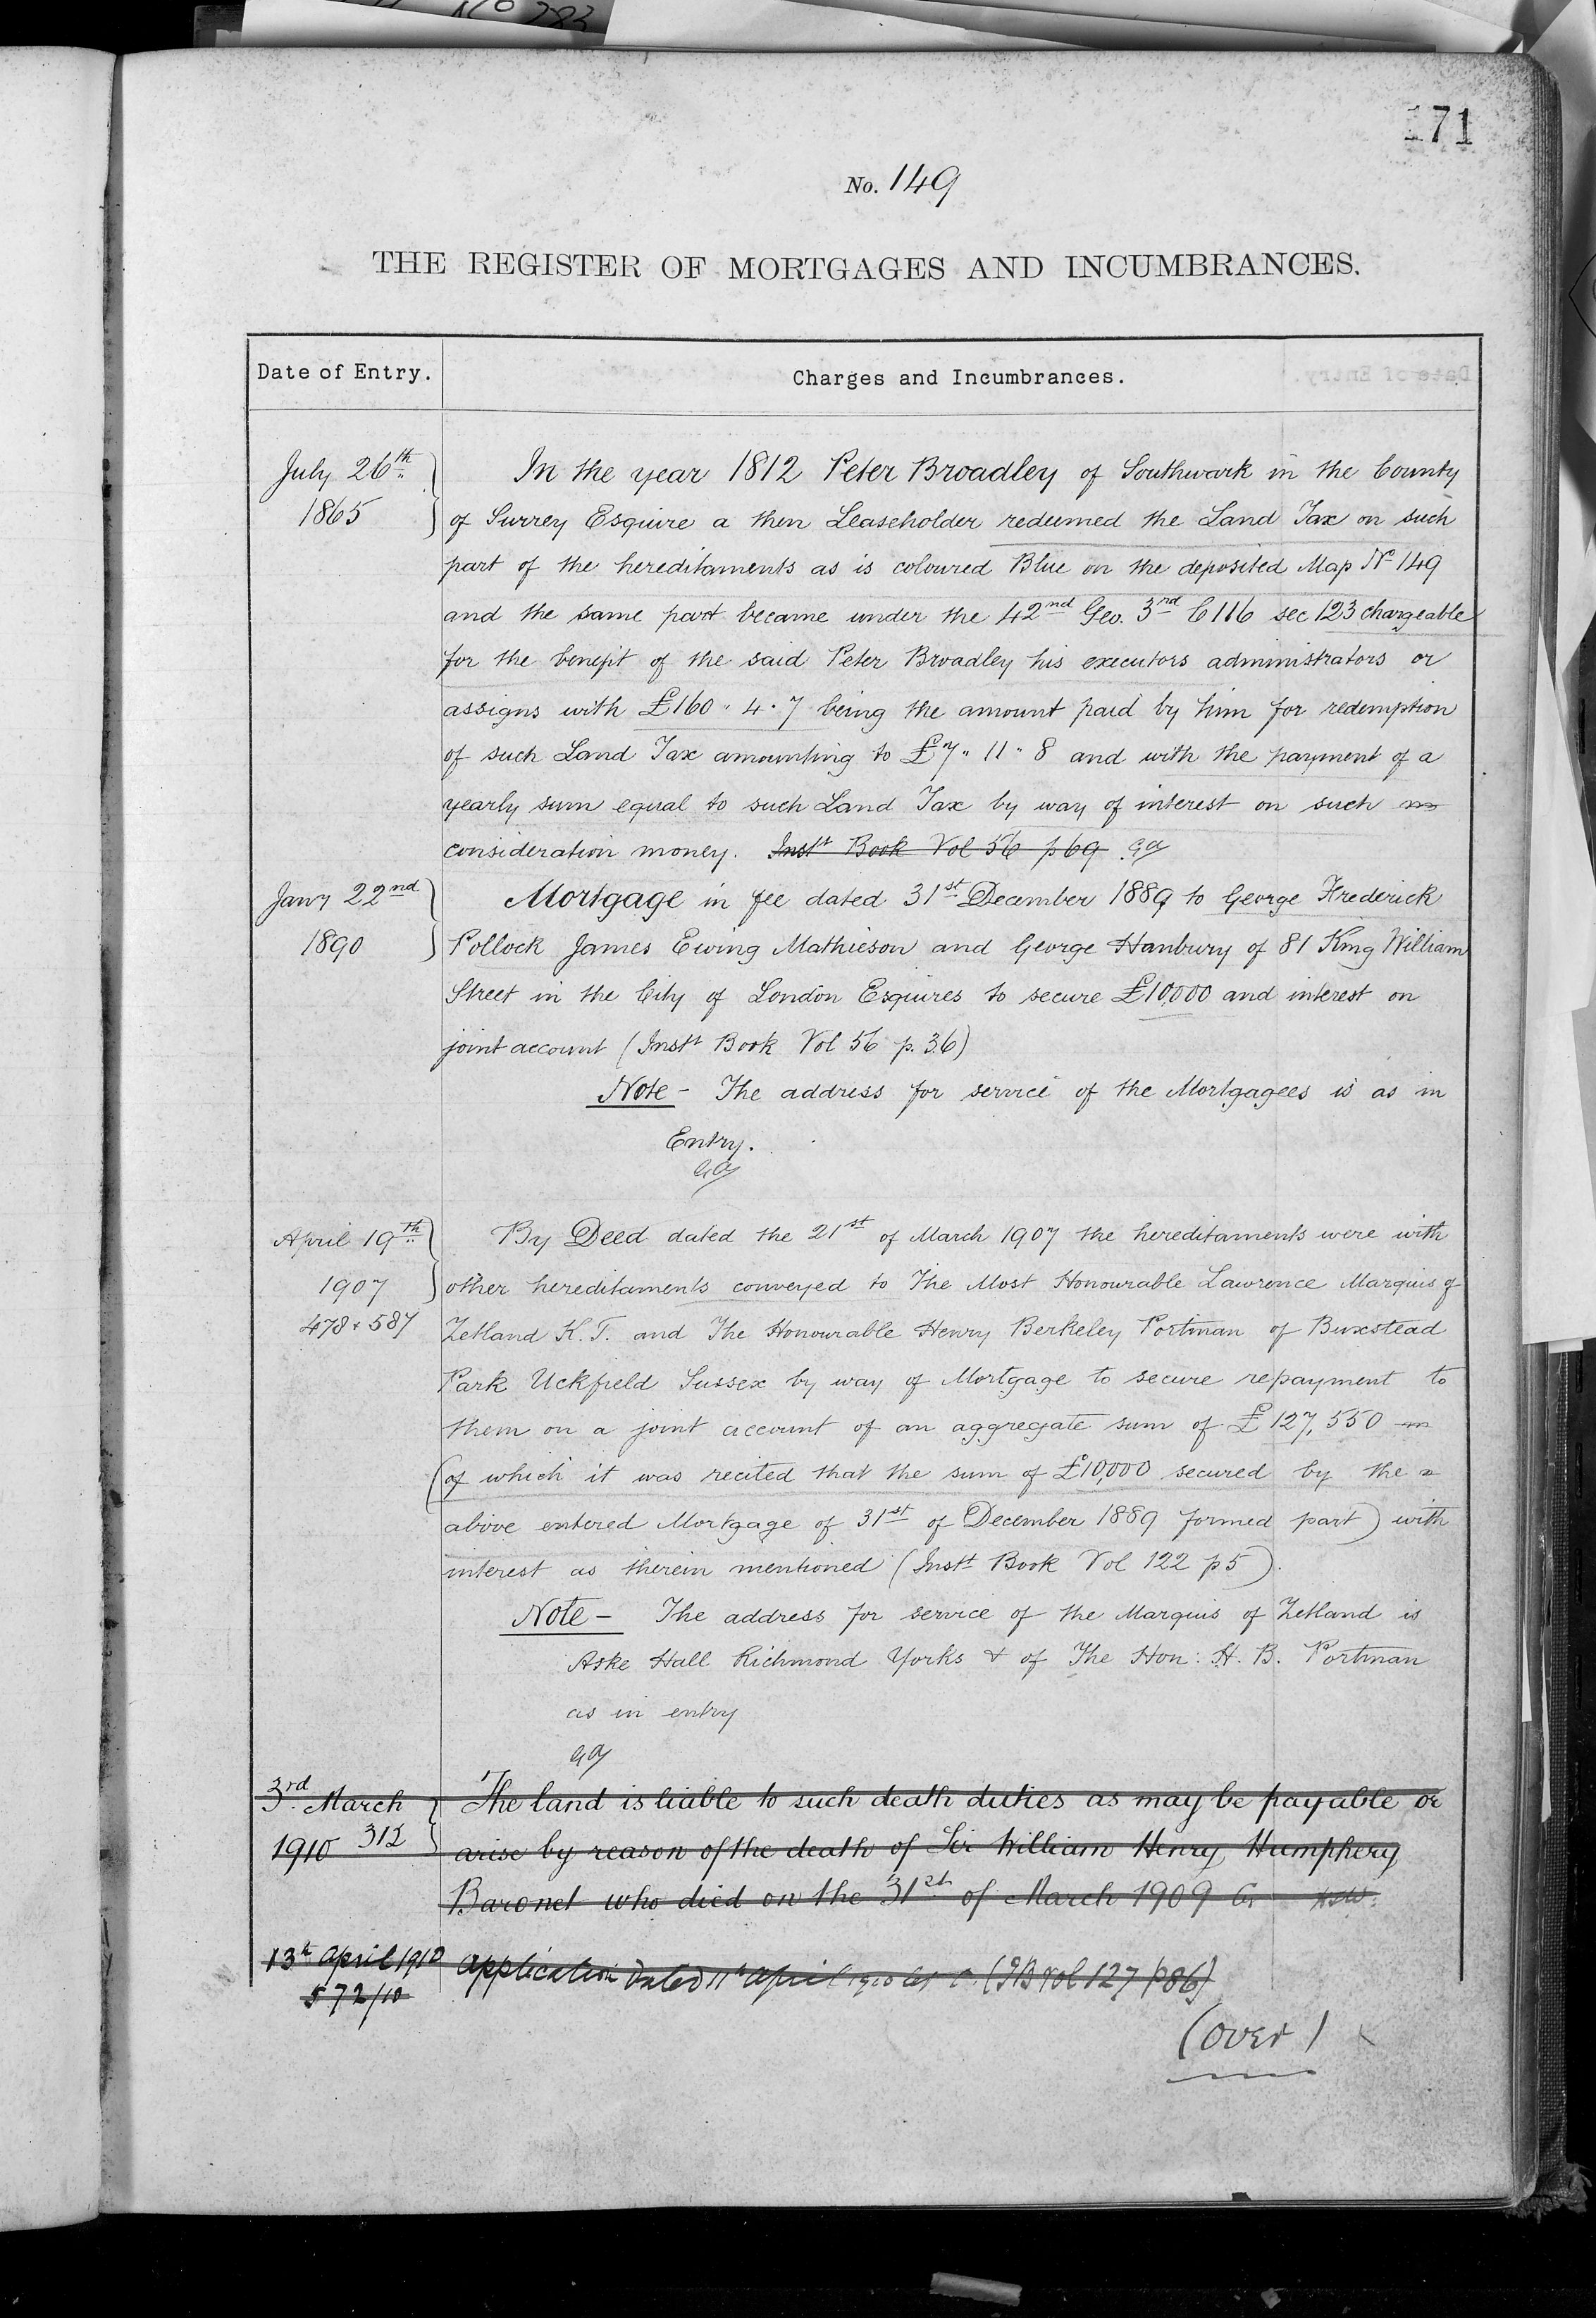 No 283
171
No. 149
THE REGISTER OF MORTGAGES AND INCUMBRANCES.
Date of Entry.
Charges and Incumbrances.
July 26th 1865
In the year 1812 Peter Broadley of Southwark in the County
of Surrey Esquire a then Leaseholder redeemed the Land Tax on such
part of the hereditaments as is coloured Blue on the deposited Map No 149
and the same part became under the 42nd Geo. 3rd C 116 sec 123 chargeable
for the benefit of the said Peter Broadley his executors administrators or
assigns with £160 " 4 " 7 being the amount paid by him for redemption
of such Land Tax amounting to £7 " 11 " 8 and with the payment of a
yearly sum equal to such Land Tax by way of interest on such
consideration money. Instt Book Vol 56 p 69
Jany 22nd 1890
Mortgage in fee dated 31st December 1889 to George Frederick
Pollock James Ewing Mathieson and George Hanbury of 81 King William
Street in the City of London Esquires to secure £10,000 and interest on
joint account (Instt Book Vol 56 p. 36)
Note - The address for service of the Mortgagees is as in
Entry.
April 19th 1907
478 & 587
By Deed dated the 21st of March 1907 the hereditaments were with
other hereditaments conveyed to The Most Honourable Lawrence Marquis of
Zetland K.T. and The Honourable Henry Berkeley Portman of Buxstead
Park Uckfield Sussex by way of Mortgage to secure repayment to
them on a joint account of an aggregate sum of £127,550
(of which it was recited that the sum of £10,000 secured by the
above entered Mortgage of 31st of December 1889 formed part) with
interest as therein mentioned (Instt Book Vol 122 p 5).
Note - The address for service of the Marquis of Zetland is
Aske Hall Richmond Yorks & of The Hon: H. B. Portman
as in entry
3rd March 1910 312
The land is liable to such death duties as may be payable or
arise by reason of the death of Sir William Henry Humphery
Baronet who died on the 31st of March 1909
13th April 1910
572/10
Application dated 11th April 1910 (IB Vol 127 p 86)
(over)